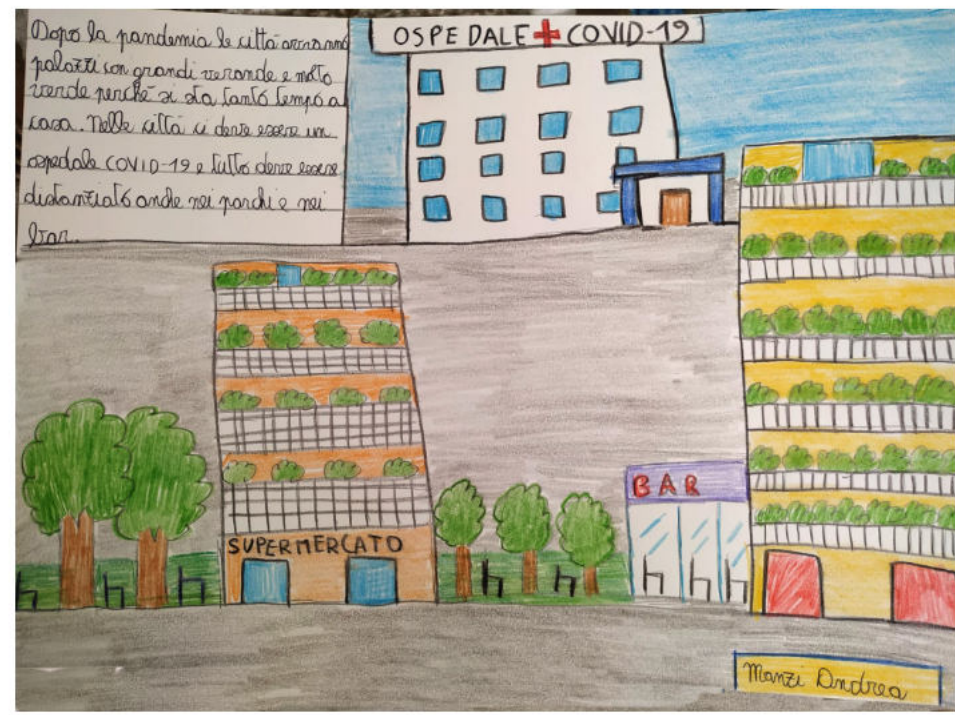 Dopo la pandemia le città avranno
palazzi con grandi verande e molto
verde perché si sta tanto tempo a
casa. Nelle città ci deve essere un
ospedale COVID-19 e tutto deve essere
distanziato anche nei parchi e nei
bar.
OSPEDALE + COVID-19
BAR
SUPERMERCATO
Manzi Andrea